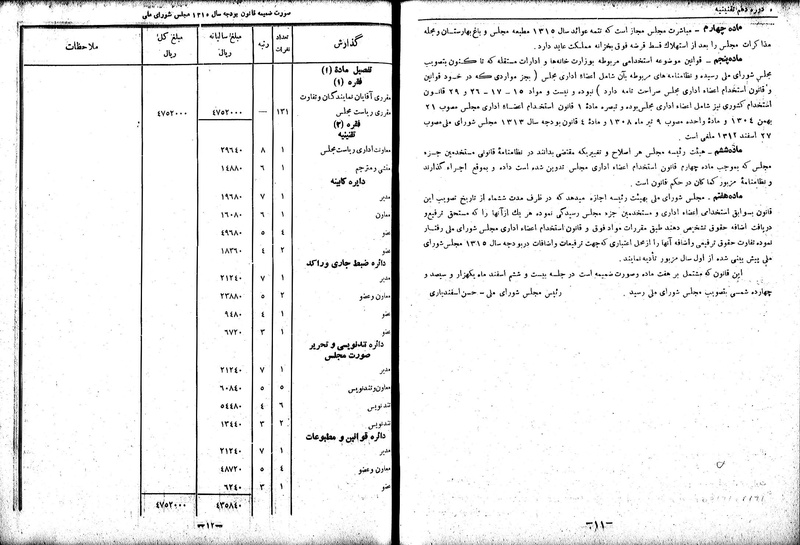 دوره دهم تقنینیه
ماده چهارم - مباشرت مجلس مجاز است که تتمه عوائد سال ۱۳۱۵ مطبعه مجلس و باغ بهارستان و مجله
مذاکرات مجلس را بعد از استهلاک قسط قرضه فوق بخزانه مملکت عاید دارد.
ماده پنجم - قوانین موضوعه استخدامی مربوطه بوزارت خانه‌ها و ادارات مستقله که تا کنون بتصویب
مجلس شورای ملی رسیده و نظامنامه های مربوطه بآن شامل اعضاء اداری مجلس (بجز مواردی که در خود قوانین
و قانون استخدام اعضاء اداری مجلس صراحت نامه دارد) نبوده و نیست و مواد ۱۵ - ۱۷ - ۲۹ و ۲۹ قانون
استخدام کشوری نیز شامل اعضاء اداری مجلس بوده و تبصره ماده ۱ قانون استخدام اعضاء اداری مجلس مصوب ۲۱
بهمن ۱۳۰۴ و ماده واحده مصوب ۹ تیر ماه ۱۳۰۸ و ماده ۴ قانون بودجه سال ۱۳۱۳ مجلس شورای ملی مصوب
۲۷ اسفند ۱۳۱۲ ملغی است.
ماده ششم - هیئت رئیسه مجلس هر اصلاح و تغییریکه مقتضی بدانند در نظامنامهٔ قانونی مستخدمین جزء
مجلس که بموجب ماده چهارم قانون استخدام اعضاء اداری مجلس تدوین شده است داده و بموقع اجراء گذارند
و نظامنامهٔ مزبور کماکان در حکم قانون است.
ماده هفتم - مجلس شورای ملی بهیئت رئیسه اجازه میدهد که در ظرف مدت ششماه از تاریخ تصویب این
قانون بسوابق استخدامی اعضاء اداری و مستخدمین جزء مجلس رسیدگی نموده هر یک از آنها را که مستحق ترفیع و
دریافت اضافه حقوق تشخیص دهند طبق مقررات مواد فوق و قانون استخدام اعضاء اداری مجلس شورای ملی رفتار
نموده تفاوت حقوق ترفیعی و اضافه آنها را از محل اعتباری که جهت ترفیعات و اضافات در بودجه سال ۱۳۱۵ مجلس شورای
ملی پیش بینی شده از اول سال مزبور تأدیه نمایند.
این قانون که مشتمل بر هفت ماده و صورت ضمیمه است در جلسه بیست و ششم اسفند ماه یکهزار و سیصد و
چهارده شمسی بتصویب مجلس شورای ملی رسید. رئیس مجلس شورای ملی - حسن اسفندیاری
-۱۱-
صورت ضمیمه قانون بودجه سال ۱۳۱۵ مجلس شورای ملی
گذارش تعداد نفرات رتبه مبلغ سالیانه ریال مبلغ کل ریال ملاحظات
تفصیل مادهٔ (۱)
فقره (۱)
مقرری آقایان نمایندگان و تفاوت
مقرری ریاست مجلس ۱۳۱ — ۴۷۵۲۰۰۰ ۴۷۵۲۰۰۰
فقره (۲)
تقنینیه
معاونت اداری ریاست مجلس ۱ ۸ ۲۹۶۴۰
منشی و مترجم ۱ ۶ ۱۴۸۸۰
دایره کابینه
مدیر ۱ ۷ ۱۹۶۸۰
معاون ۱ ۶ ۱۶۰۸۰
عضو ۴ ۵ ۴۹۶۸۰
عضو ۲ ۴ ۱۸۳۶۰
دائره ضبط جاری و راکد
مدیر ۱ ۷ ۲۱۲۴۰
معاون و عضو ۲ ۵ ۲۳۸۸۰
عضو ۱ ۴ ۹۴۸۰
عضو ۱ ۳ ۶۷۲۰
دائره تندنویسی و تحریر
صورت مجلس
مدیر ۱ ۷ ۲۱۲۴۰
معاون و تندنویس ۵ ۵ ۶۰۸۴۰
تندنویس ۶ ۴ ۵۴۴۸۰
تندنویس ۲ ۳ ۱۳۴۴۰
دائره قوانین و مطبوعات
مدیر ۱ ۷ ۲۱۲۴۰
معاون و عضو ۴ ۵ ۴۸۷۲۰
عضو ۱ ۳ ۶۲۴۰
۴۳۵۸۴۰ ۴۷۵۲۰۰۰
-۱۲-